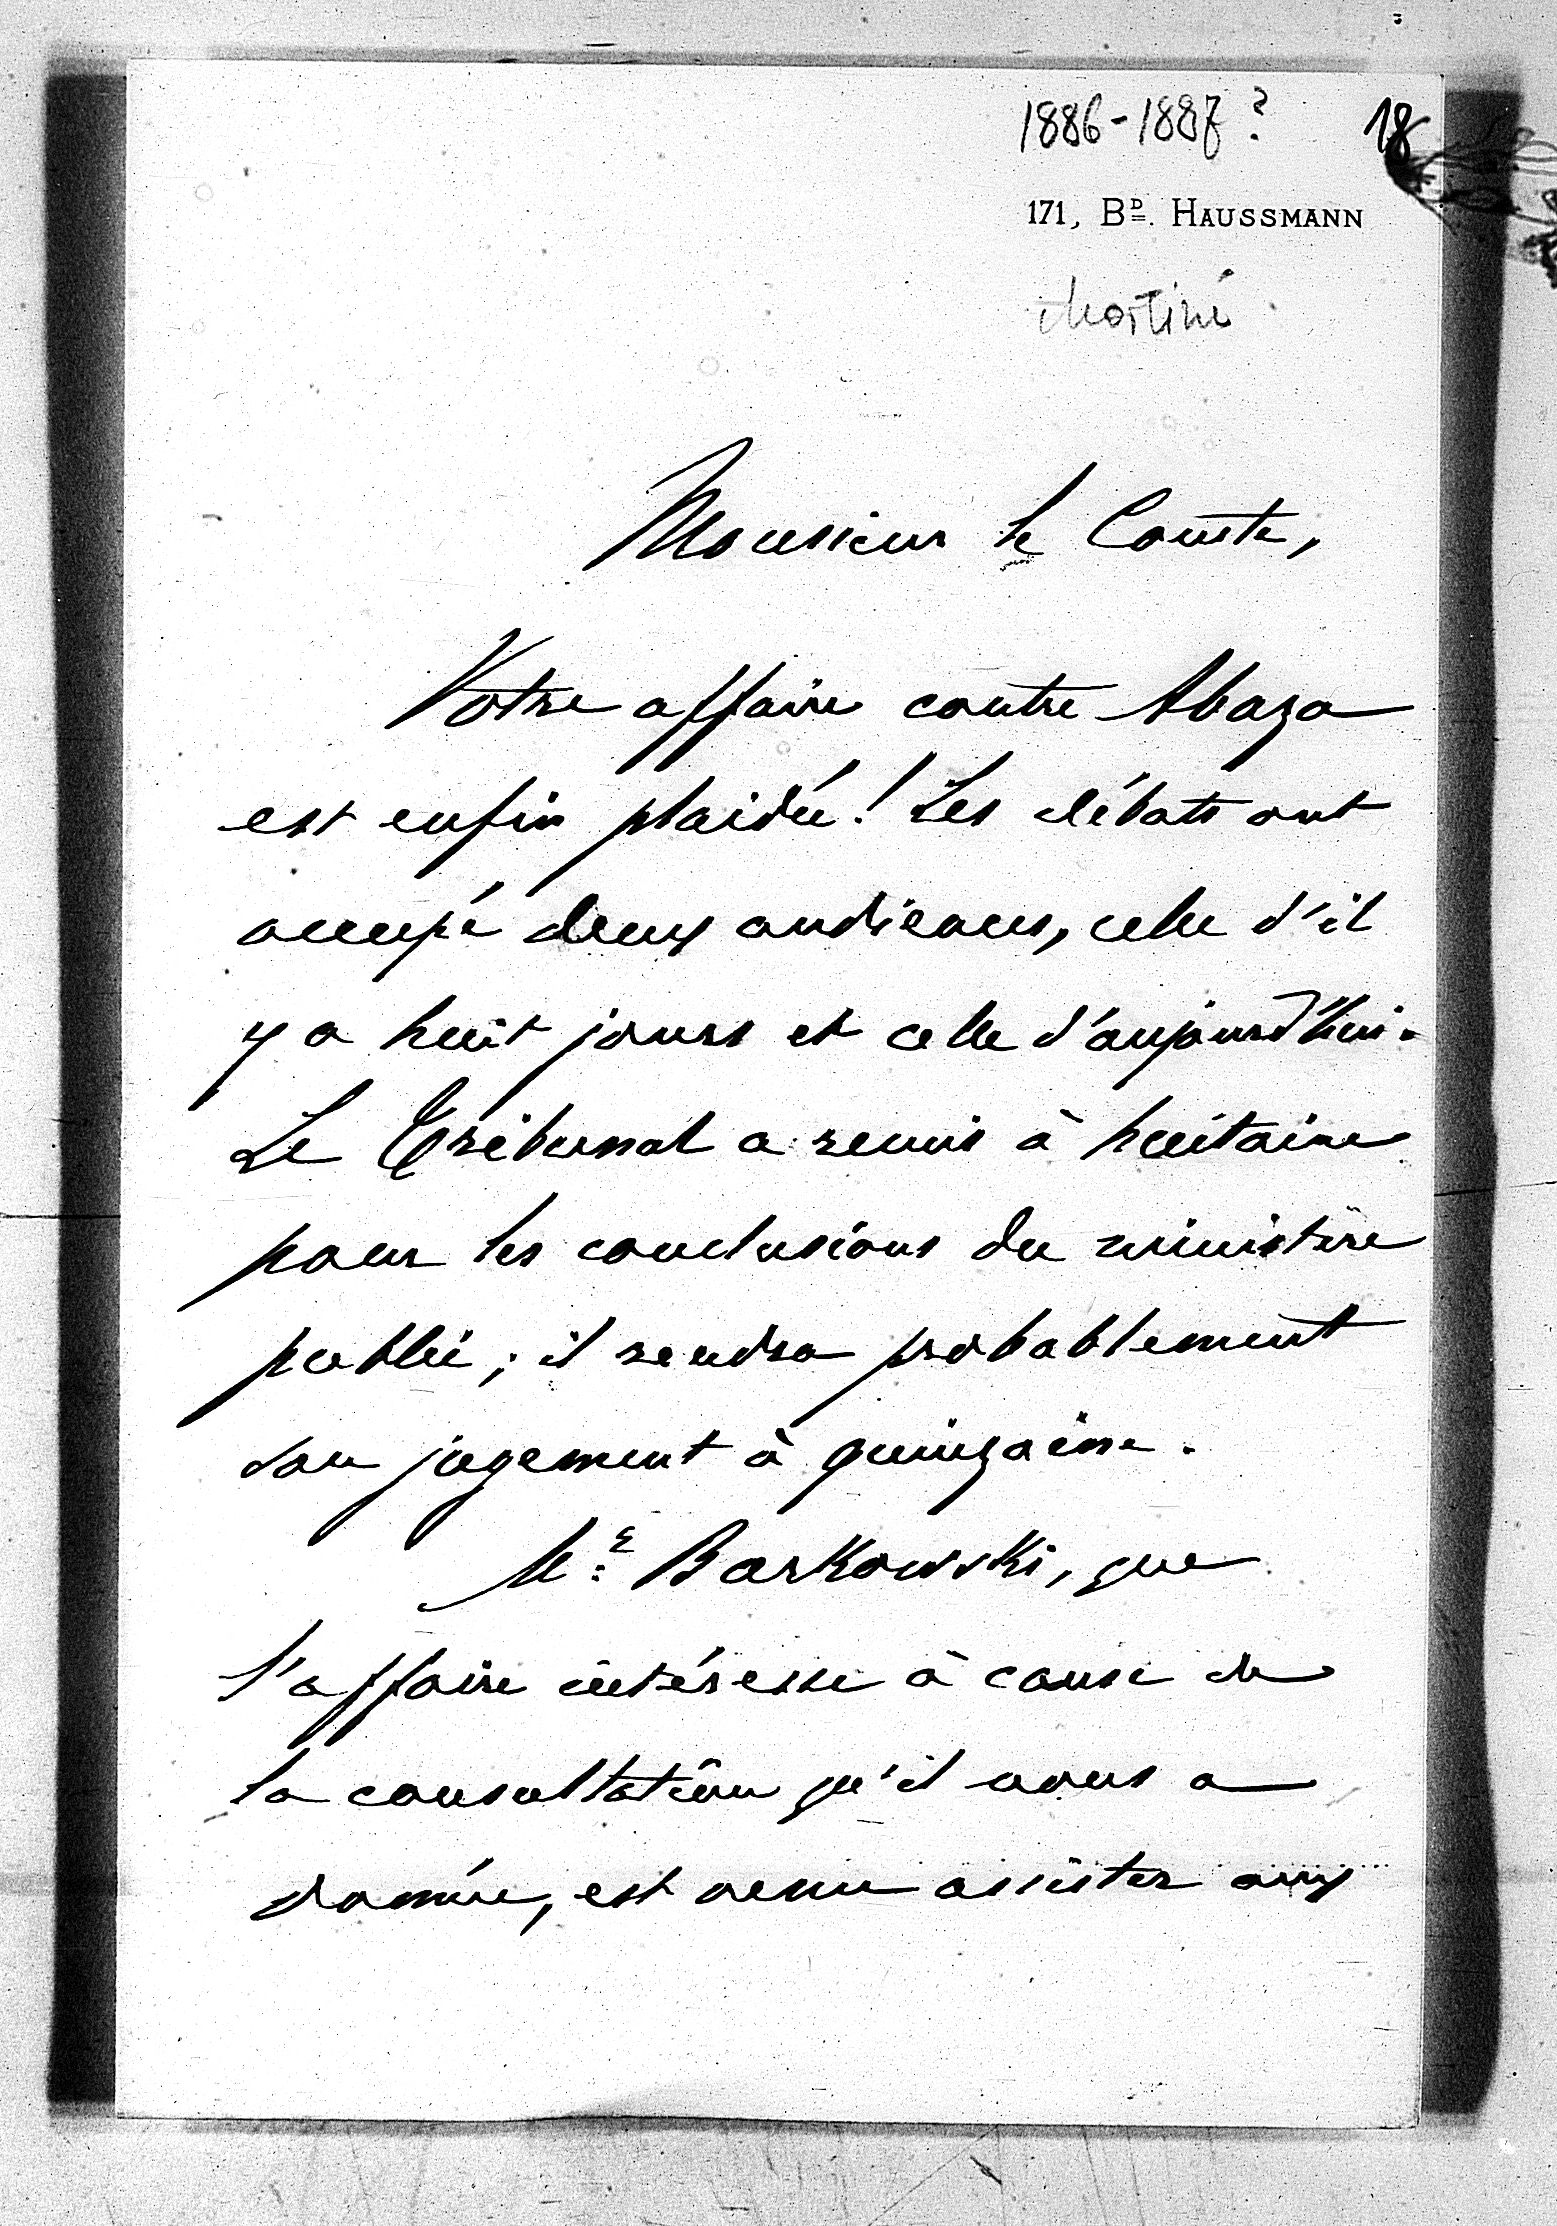 1886-1887 ? 18
171, Bd. HAUSSMANN
Martini
Monsieur le Comte,
Votre affaire contre Abaza
est enfin plaidée ! Les débats ont
occupé deux audiences, celle d'il
y a huit jours et celle d'aujourd'hui.
Le Tribunal a remis à huitaine
pour les conclusions du ministère
public ; il rendra probablement
son jugement à quinzaine.
Me Barkowski, que
l'affaire intéresse à cause de
la consultation qu'il nous a
donnée, est venu assister aux